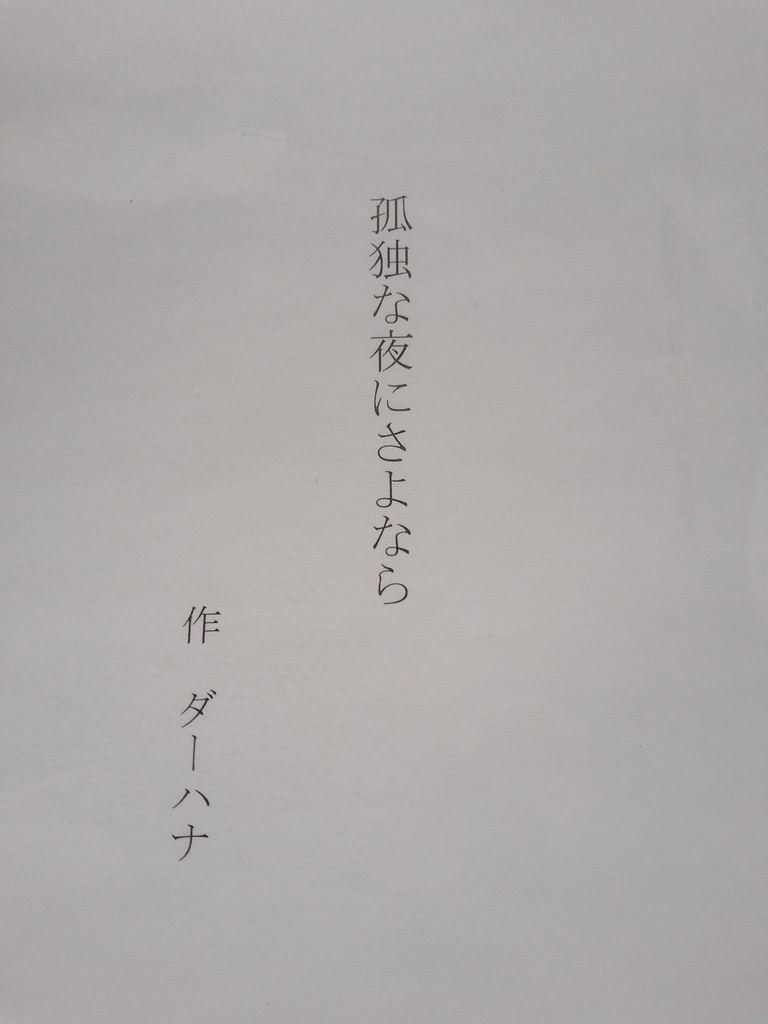 孤独な夜にさよなら
作　ダーハナ